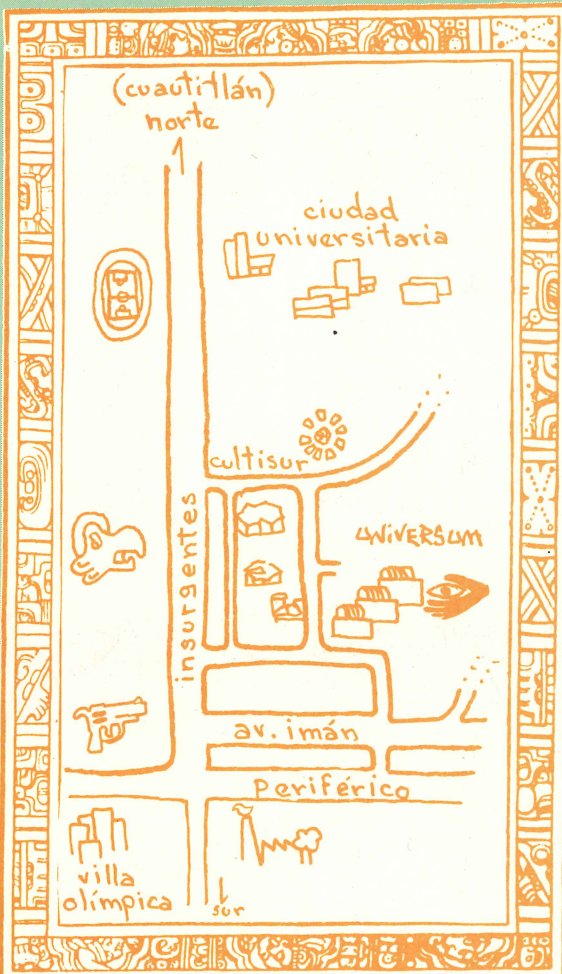 (cuautitlán)
norte
ciudad
universitaria
cultisur
insurgentes
UNiVERSUM
av. imán
Periférico
villa
olímpica
sur